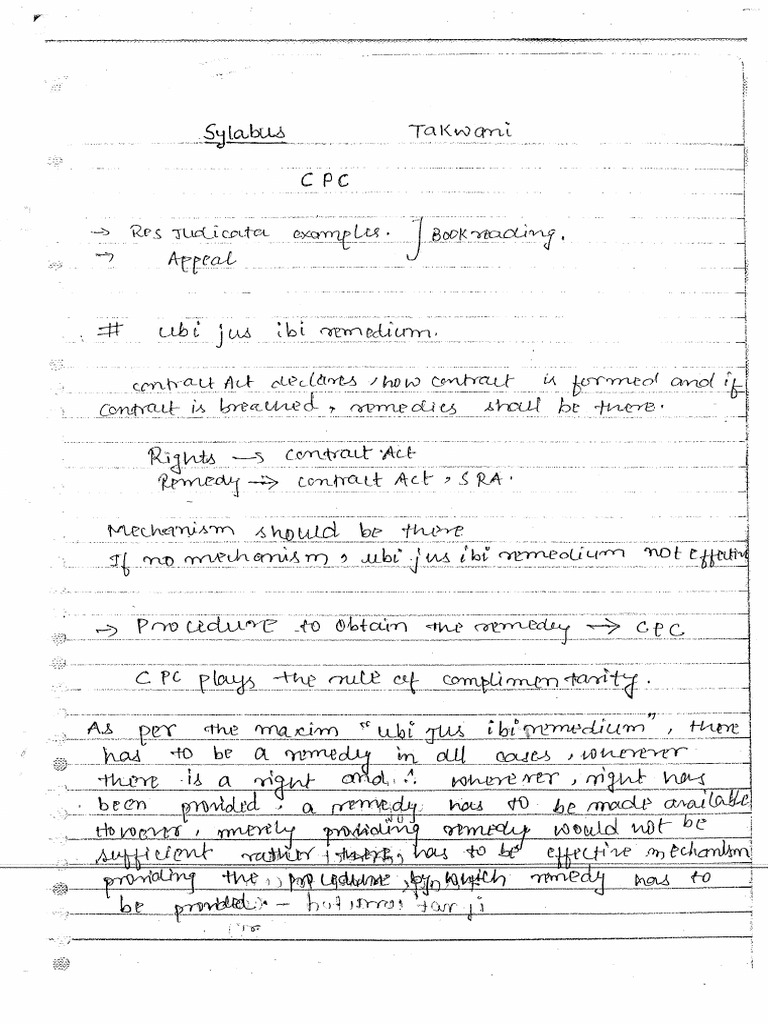 Sylabus Takwani
CPC
→ Res Judicata examples. } Book reading.
→ Appeal
# ubi jus ibi remedium.
contract Act declares, how contract is formed and if
contract is breached, remedies shall be there.
Rights → contract Act
Remedy → contract Act, SRA.
Mechanism should be there
If no mechanism, ubi jus ibi remedium not effective
→ Procedure to obtain the remedy → CPC
CPC plays the rule of complimentarity.
As per the maxim "ubi jus ibi remedium", there
has to be a remedy in all cases, wherever
there is a right and ∴ wherever, right has
been provided, a remedy has to be made available
However, merely providing remedy would not be
sufficient rather there has to be effective mechanism
providing the procedure by which remedy has to
be provided. -